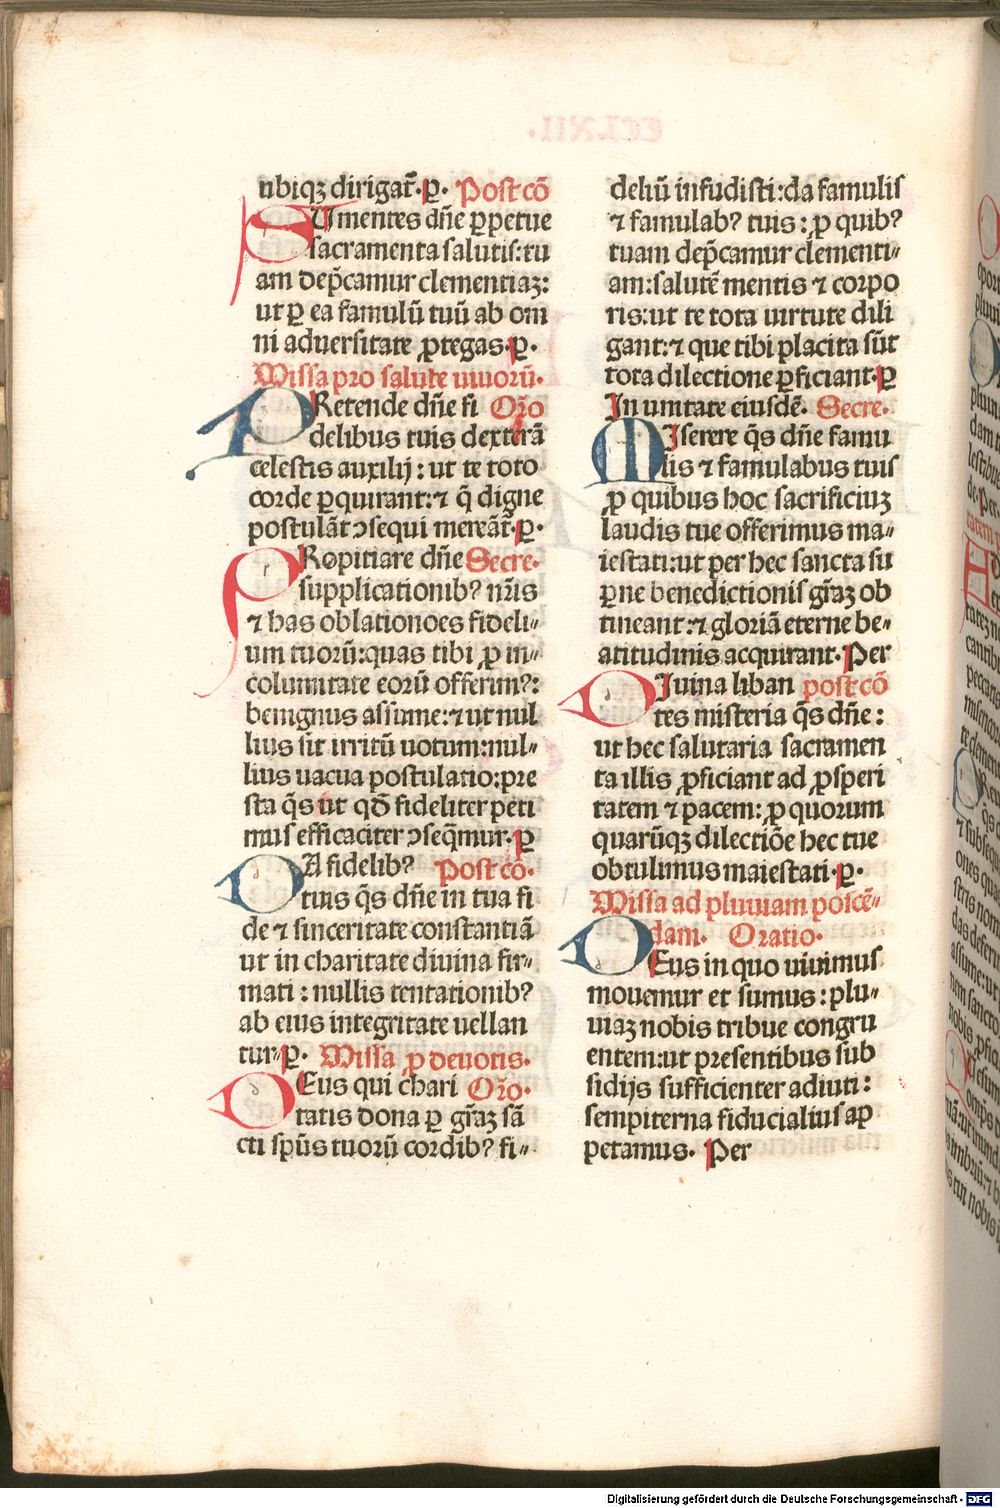 ubiqꝫ dirigat̄. ꝑ. Post cō
SUmentes dn̄e ꝑpetue
sacramenta salutis: tu
am dep̄camur clementiaꝫ:
ut ꝑ ea famulū tuū ab om
ni aduersitate ꝓtegas. ꝑ.
Missa pro salute uiuorū.
PRetende dn̄e fi Or̄o
delibus tuis dexterā
celestis auxilij: ut te toto
corde ꝑquirant: ⁊ q̄ digne
postulāt ↄsequi mereāt̄. ꝑ.
PRopitiare dn̄e Secre.
supplicationibꝰ nr̄is
⁊ has oblationoes fideli⸗
um tuorū: quas tibi ꝓ in⸗
columitate eorū offerimꝰ:
benignus assume: ⁊ ut nul
lius sit irritū uotum: nul⸗
lius uacua postulatio: pre
sta q̄s ut qd̄ fideliter peti
mus efficaciter ↄseq̄mur. ꝑ
DA fidelibꝰ Post cō.
tuis q̄s dn̄e in tua fi
de ⁊ sinceritate constantiā
ut in charitate diuina fir⸗
mati: nullis tentationibꝰ
ab eius integritate uellan
tur⸗ ꝑ. Missa ꝓ deuotis.
DEus qui chari Or̄o.
tatis dona ꝑ gr̄aꝫ sā
cti sp̄us tuorū cordibꝰ fi⸗
deliū infudisti: da famulis
⁊ famulabꝰ tuis: ꝓ quibꝰ
tuam dep̄camur clementi⸗
am: salutē mentis ⁊ corpo
ris: ut te tota uirtute dili
gant: ⁊ que tibi placita sūt
tota dilectione ꝑficiant. ꝑ
In unitate eiusdē. Secre.
MIserere q̄s dn̄e famu
lis ⁊ famulabus tuis
ꝓ quibus hoc sacrificiuꝫ
laudis tue offerimus ma⸗
iestati: ut per hec sancta su
ꝑne benedictionis gr̄aꝫ ob
tineant: ⁊ gloriā eterne be⸗
atitudinis acquirant. Per
DIuina liban post cō
tes misteria q̄s dn̄e:
ut hec salutaria sacramen
ta illis ꝓficiant ad ꝓsperi
tatem ⁊ pacem: ꝓ quorum
quarūqꝫ dilectiōe hec tue
obtulimus maiestati. ꝑ.
Missa ad pluuiam poscē⸗
dam. Oratio.
DEus in quo uiuimus
mouemur et sumus: plu⸗
uiaꝫ nobis tribue congru
entem: ut presentibus sub
sidijs sufficienter adiuti:
sempiterna fiducialius ap
petamus. Per
Digitalisierung gefördert durch die Deutsche Forschungsgemeinschaft - DFG